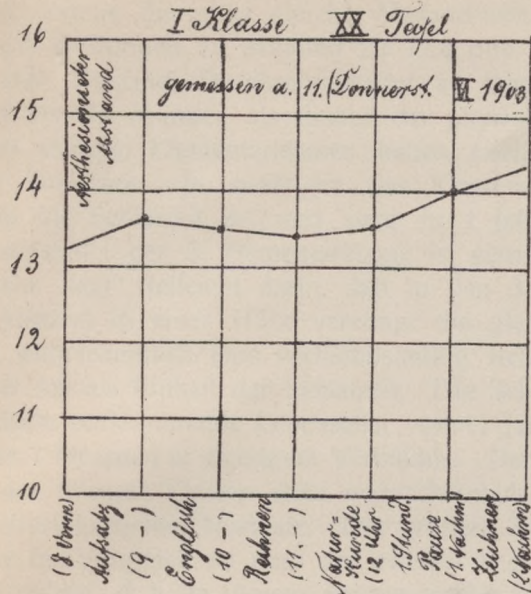 I Klasse XX Tafel
gemessen a. 11. (Donnerst. VI 1903
Aesthesiometer
Abstand
16
15
14
13
12
11
10
(8 Vorm.)
Aufsatz
(9 -)
Englisch
(10 -)
Rechnen
(11. -)
Natur=
Kunde
(12 Uhr
1. Stund.
Pause
(1. Nachm)
Zeichnen
(2 Nachm)